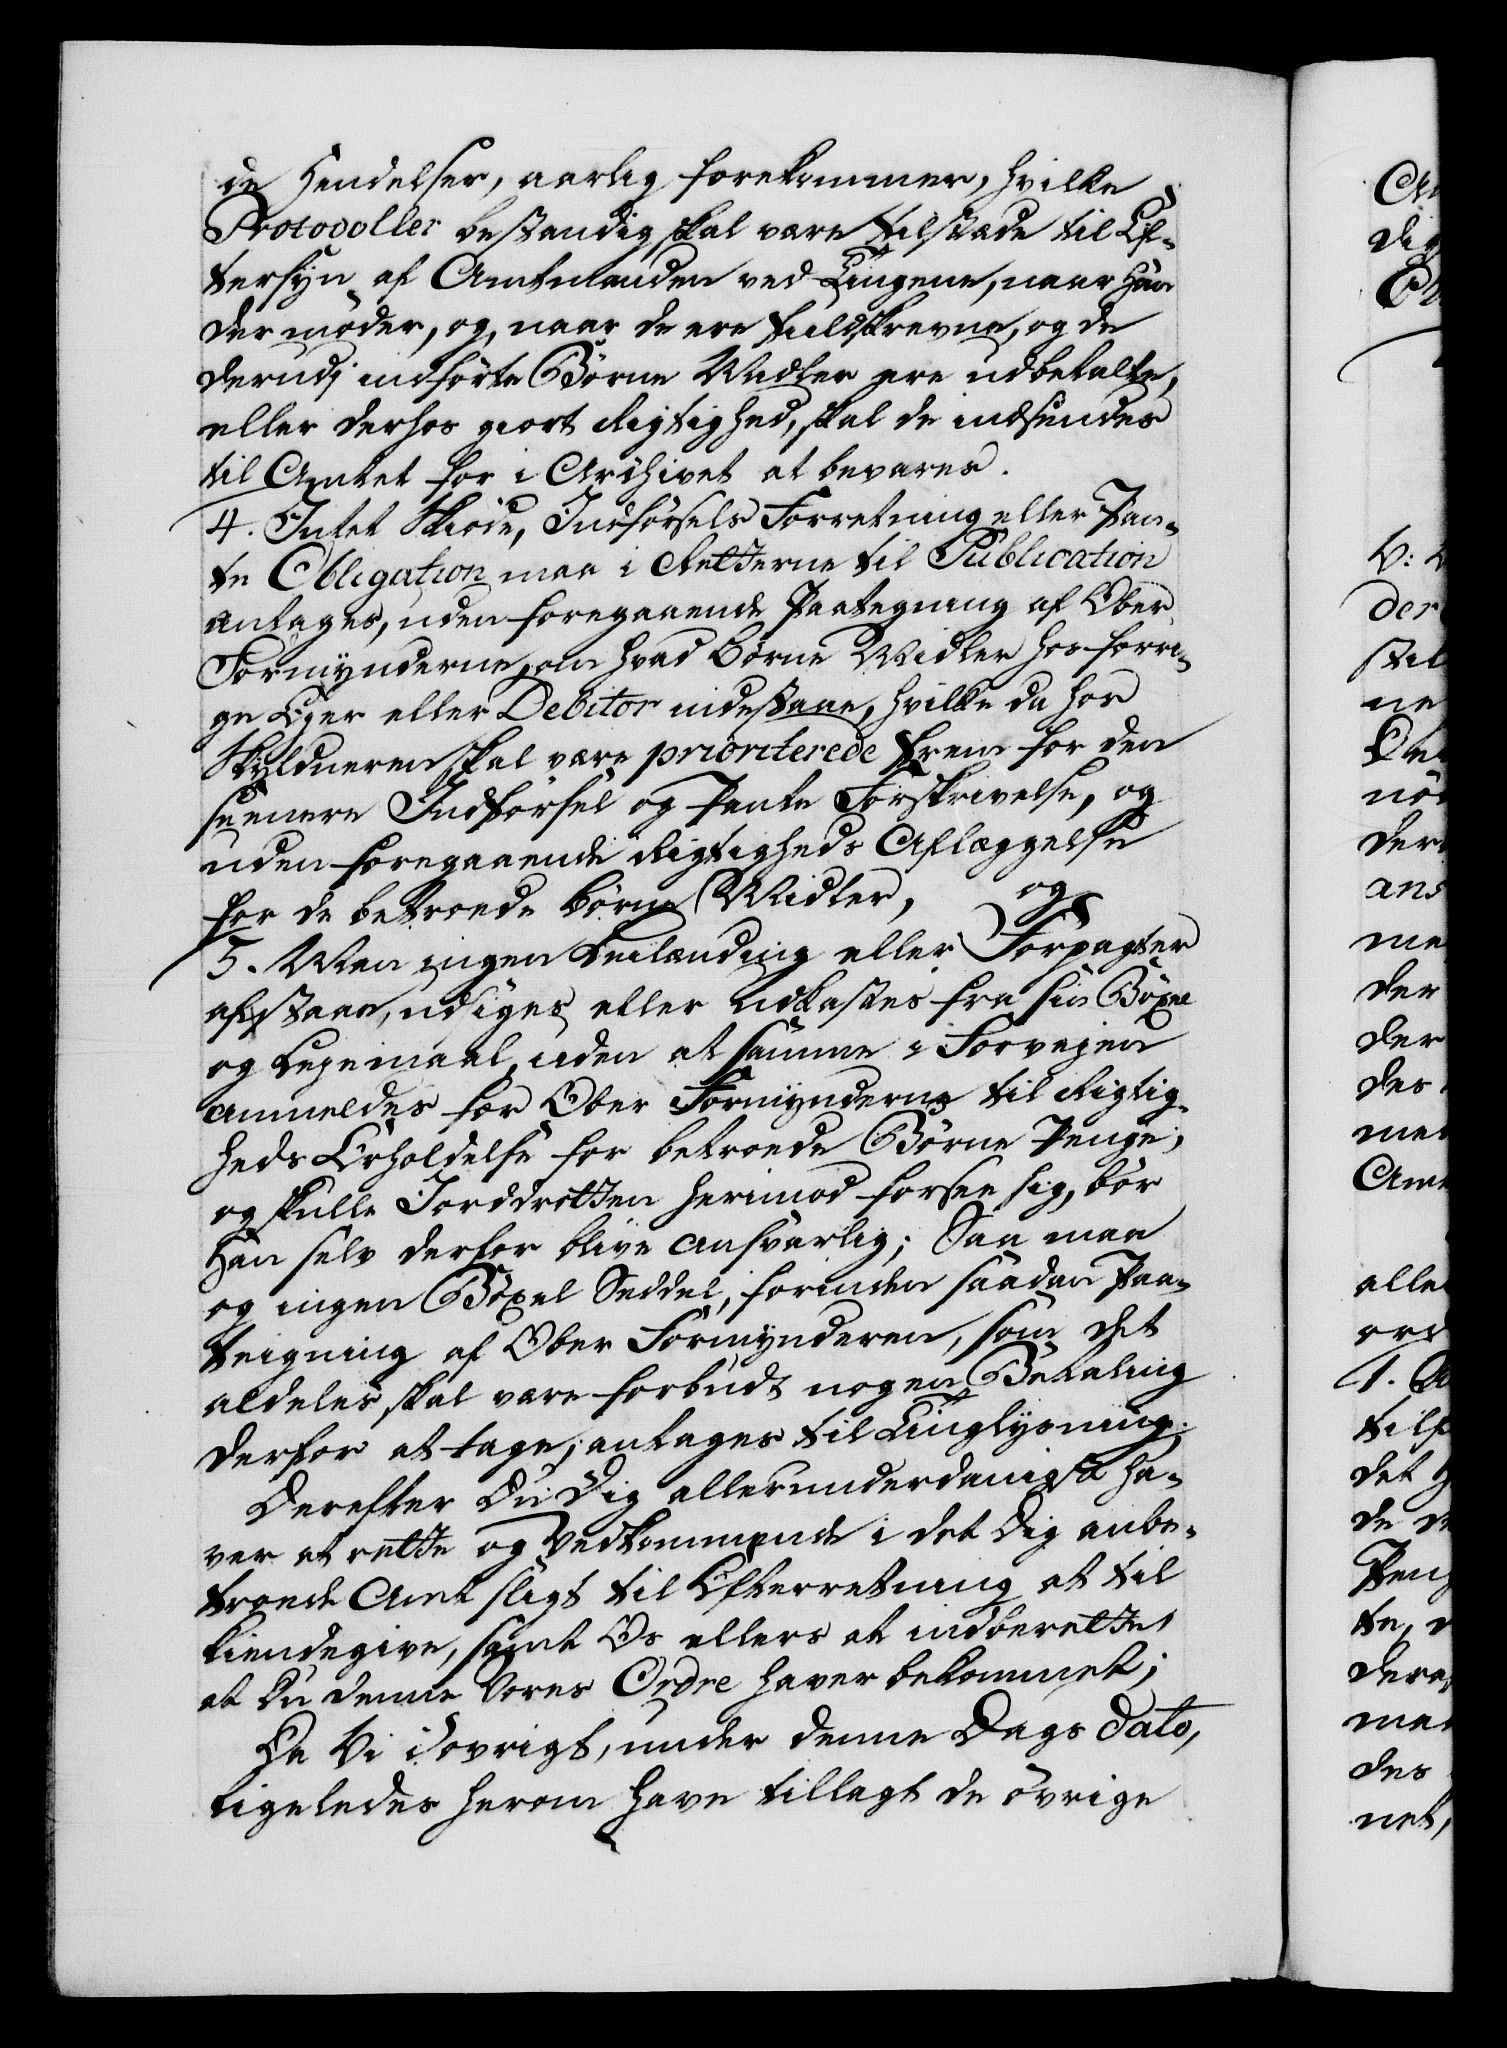 de Hendelser, aarlig forekommer, hvilke
Protocoller bestandig skal være tilstæde til Ef-
tersyn af Amtmanden ved Tingene, naar han
der møder, og, naar de ere fuldskrevne, og de
derudj indførte Börne Midler ere udbetalte,
eller derfor giort Rigtighed, skal de indsendes
til Amtet for i Archivet at bevares.
4. Intet Skiöde, Indförsels Forretning eller Pan-
te Obligation maa i Retterne til Publication
antages, uden foregaaende Paategning af Ober
Formynderne, om hvad Börne Midler hos forri-
ge Ejer eller Debitor indestaae, hvilke da hos
Skyldneren skal være prioriterede frem for den
seenere Indförsel og Pante Forskrivelse, og
uden foregaaende Rigtigheds Aflæggelse
for de betroede börne Midler, og
5. Maa ingen Leilænding eller Forpagter
afstaae, udsiges eller udkastes fra sin Böxel
og Leyemaal, uden at samme i Forvejen
anmeldes for Ober Formynderne til Rigtig-
heds Erholdelse for betroede Börne Penge;
og skulle Jorddrotten herimod forsee sig, bör
han selv derfor blive ansvarlig; Saa maa
og ingen Böxel Seddel, forinden saadan Paa-
teigning af Ober Formynderen, som det
aldeles skal være forbudt nogen Betaling
derfor at tage, antages til Tinglysning.
Derefter Du Dig allerunderdanigst ha-
ver at rette og Vedkommende i det Dig anbe-
troede Amt sligt til Efterretning at til
kiendegive, samt Os ellers at indberette
at Du denne Vores Ordre haver bekommet;
Da Vi iøvrigt, under denne Dags Dato,
ligeledes herom have tillagt de övrige